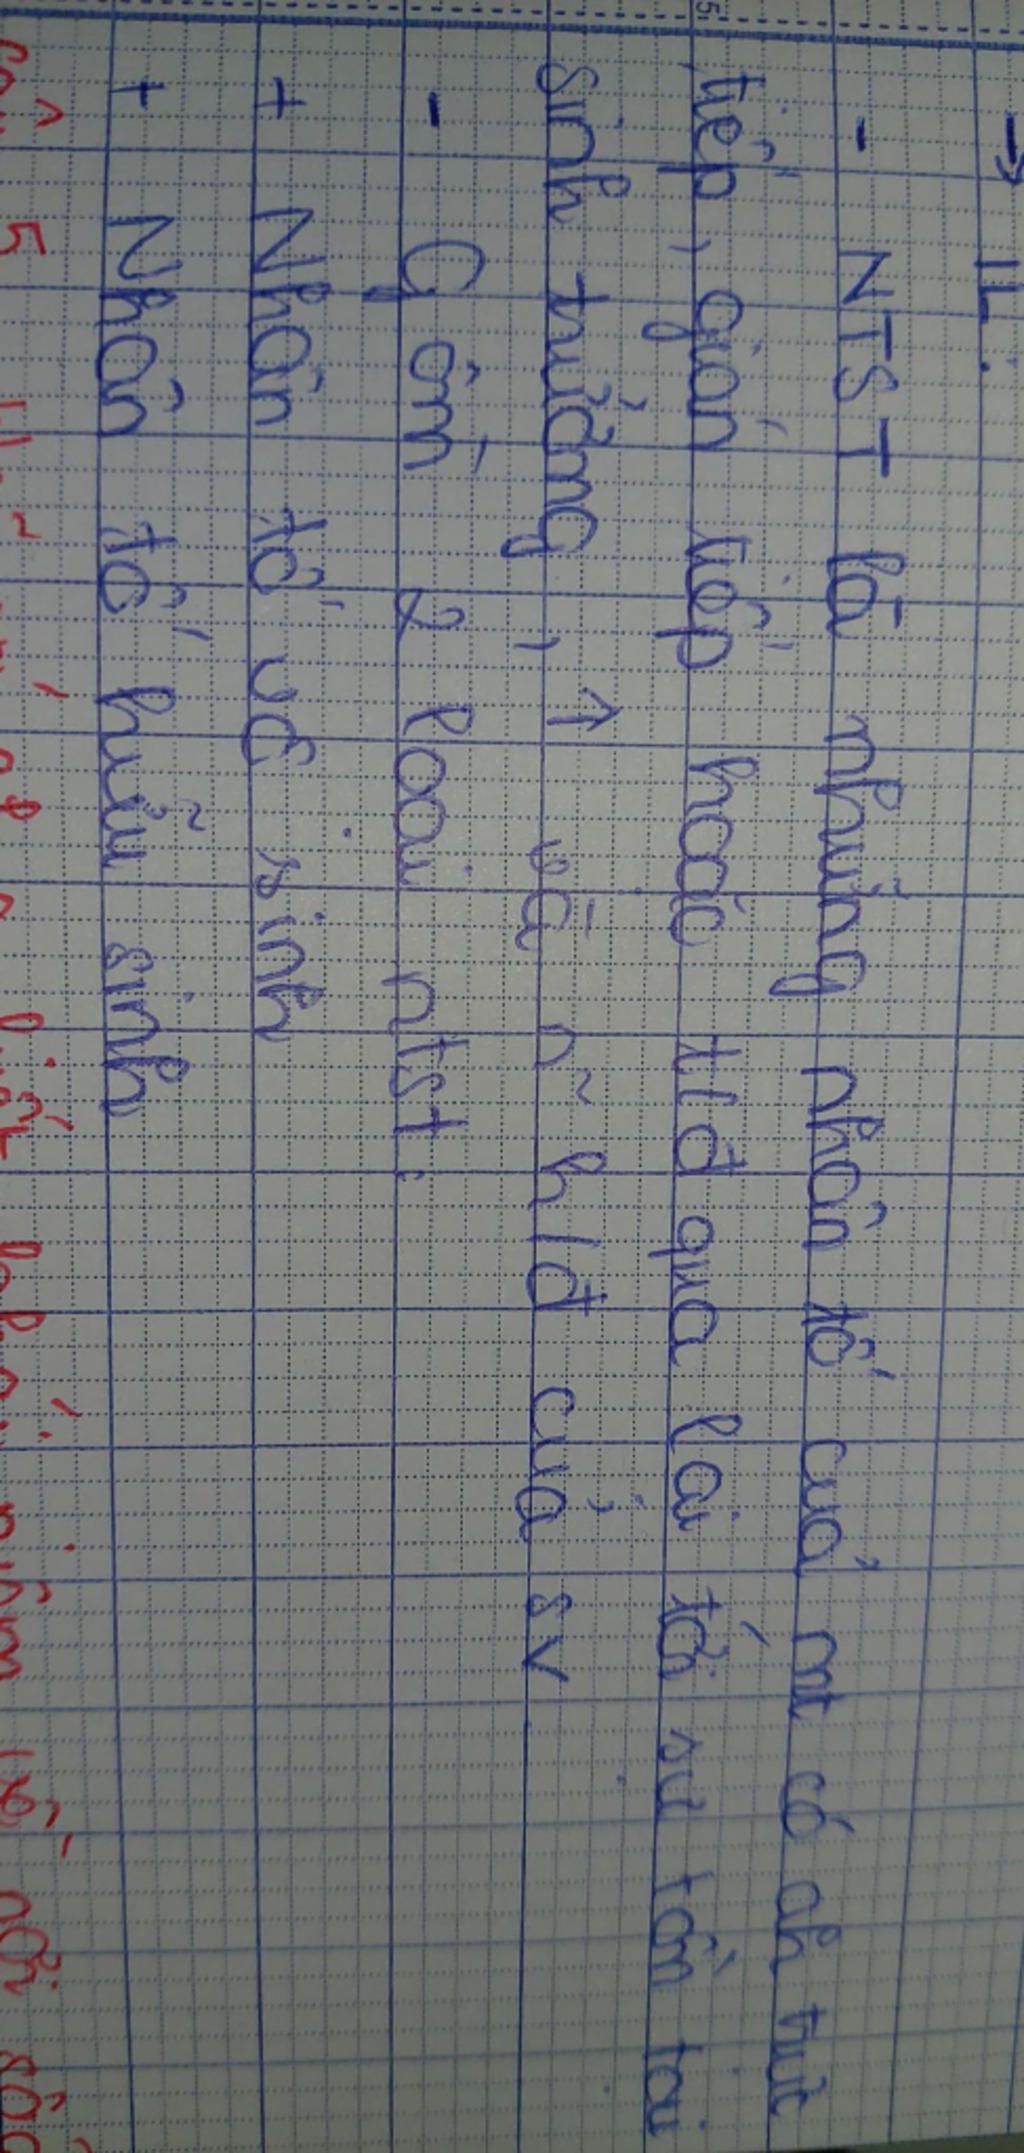 → TL:
- NTST là những nhân tố của mt có ah trực
tiếp, gián tiếp hoặc t/đ qua lại tới sự tồn tại
sinh trưởng, ↑ và n~ h/đ của sv
- Gồm 2 loại ntst:
+ Nhân tố vô sinh
+ Nhân tố hữu sinh